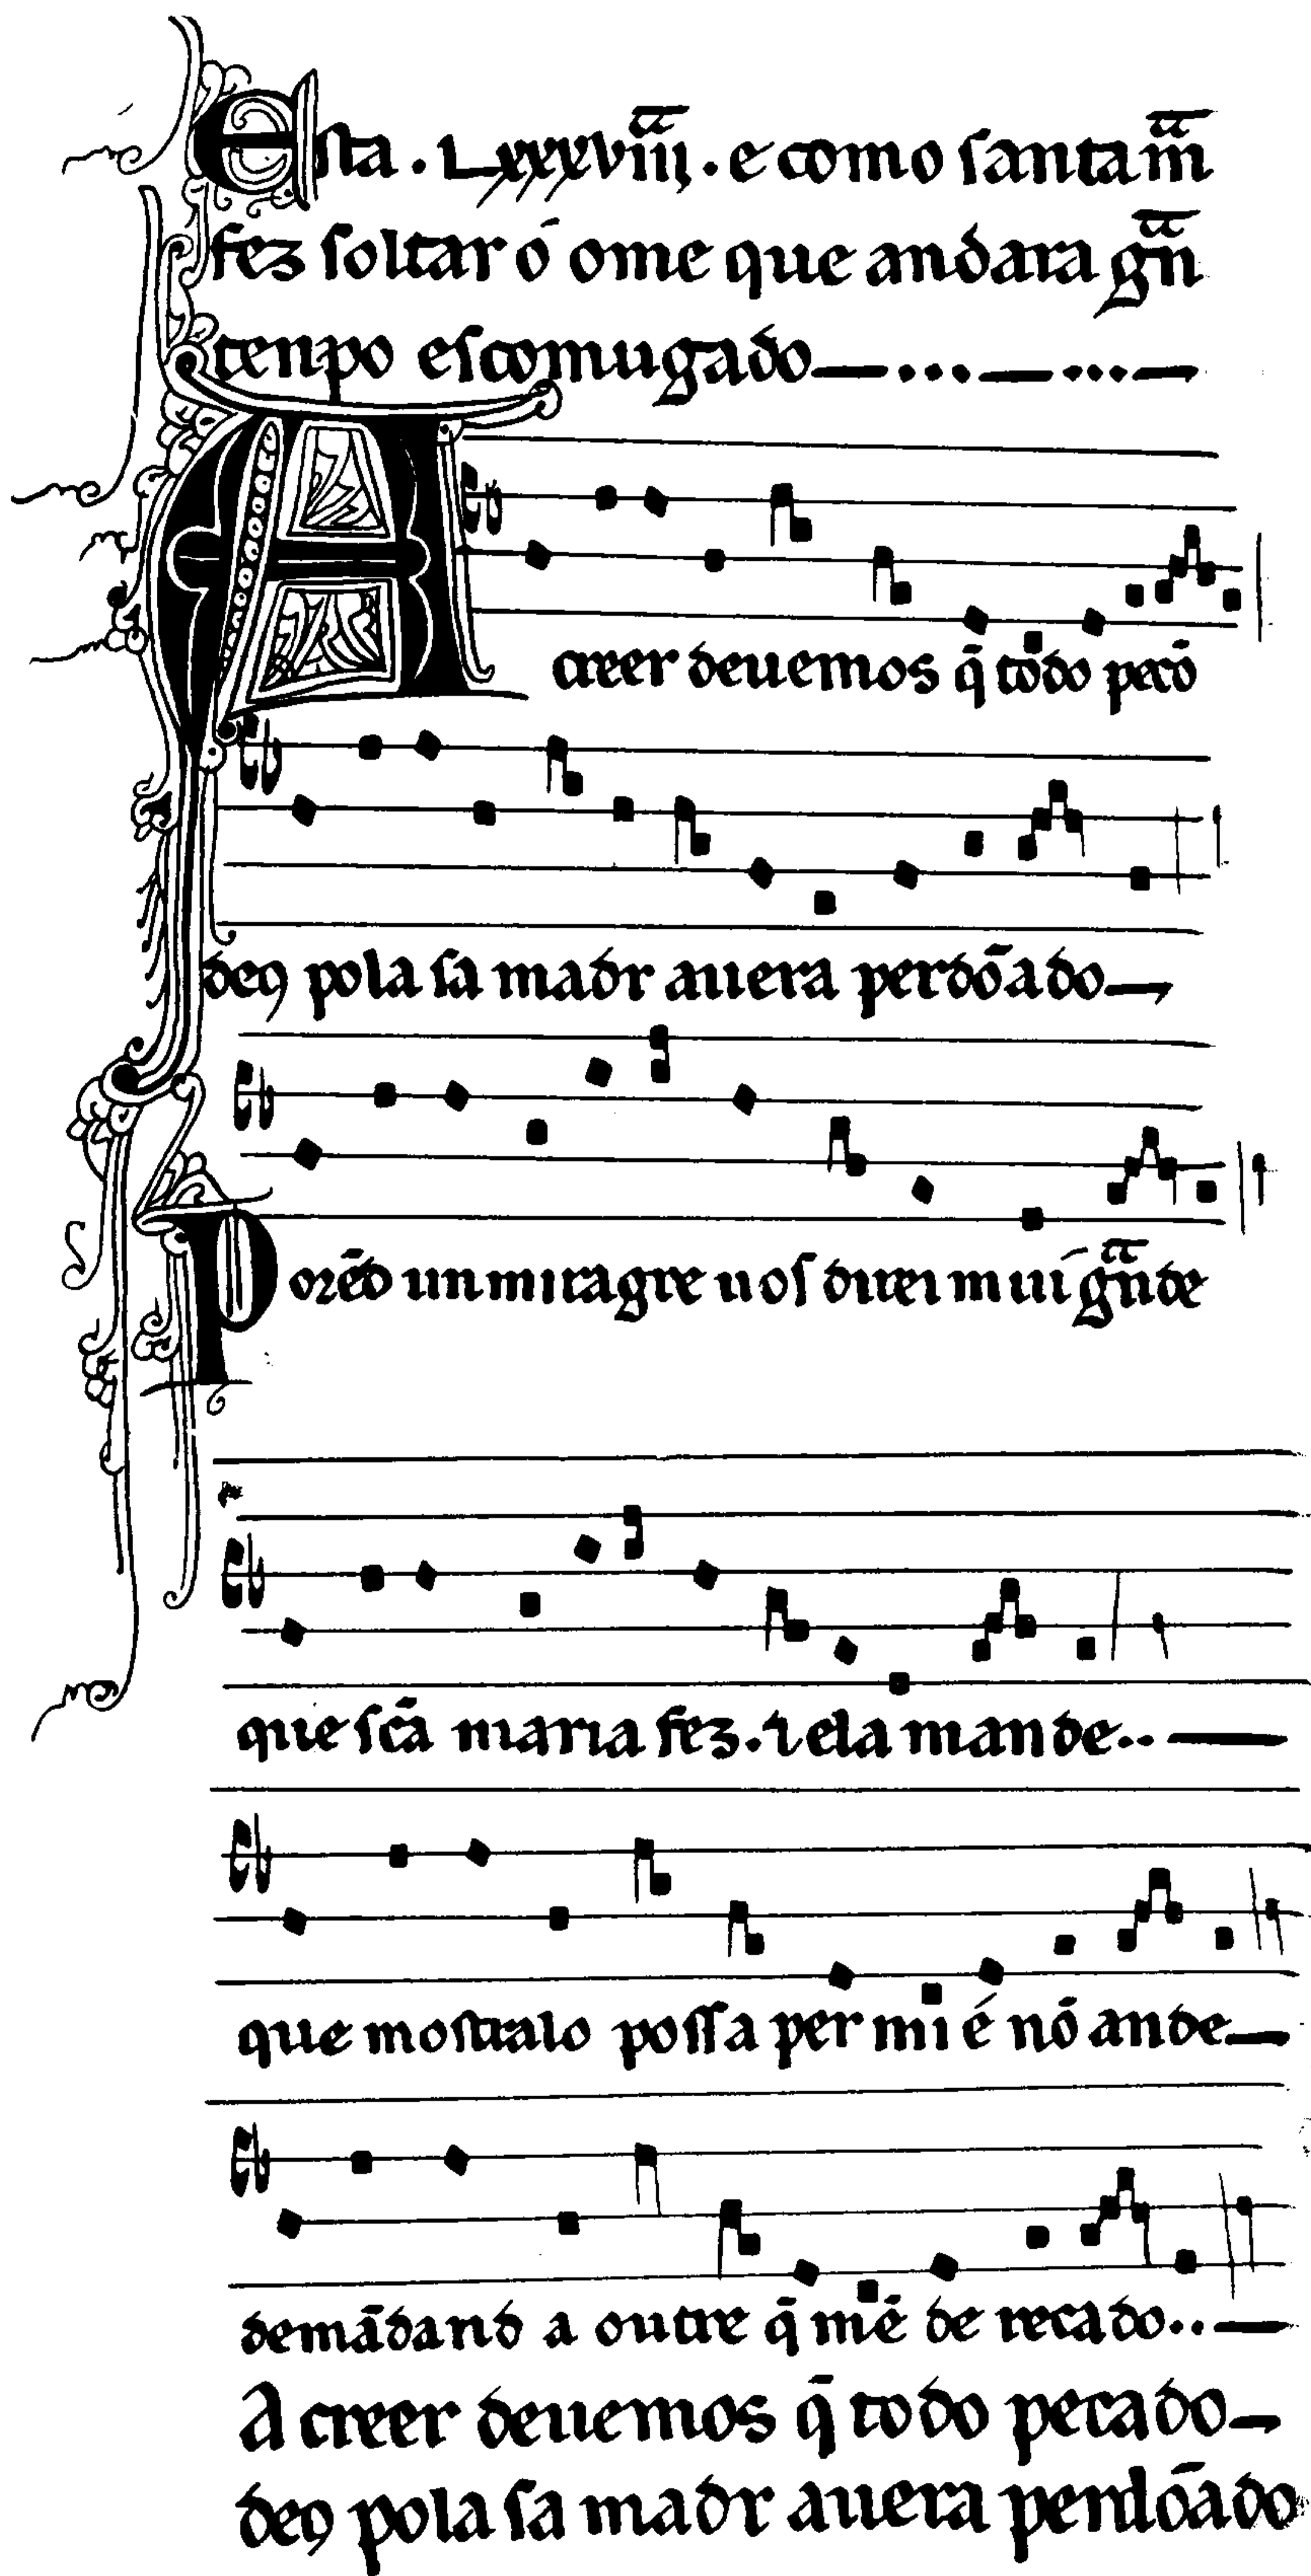 Esta . Lxxxviiij . e como santa m̃
fez soltar ó ome que andara gñ
tenpo escomugado
A creer deuemos q̃ todo pecõ
deꝯ pola sa madr auera perdõado
Porẽd un miragre uos direi mui gñde
que sc̃a maria fez . ⁊ ela mande ..
que mostralo possa per mi é nõ ande
demãdand a outre q̃ mẽ de recado ..
A creer deuemos q̃ todo pecado
deꝯ pola sa madr auera perdõado